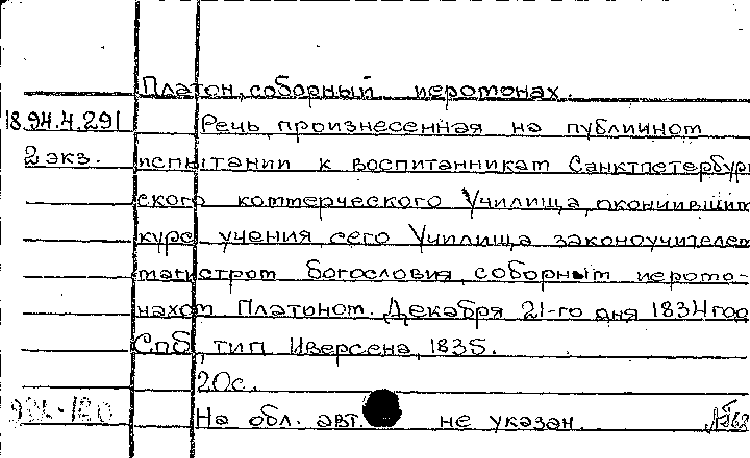 Платон, соборный иеромонах.
18.94.4.291 Речь, произнесенная на публичном
2 экз. испытании к воспитанникам Санктпетербург
ского коммерческого Училища, окончившим
курс учения сего Училища законоучителем
магистром Богословия, соборным иеромо-
нахом Платоном. Декабря 21-го дня 1834 год
Спб, тип. Иверсена, 1835.
20с.
На обл. авт. не указан.